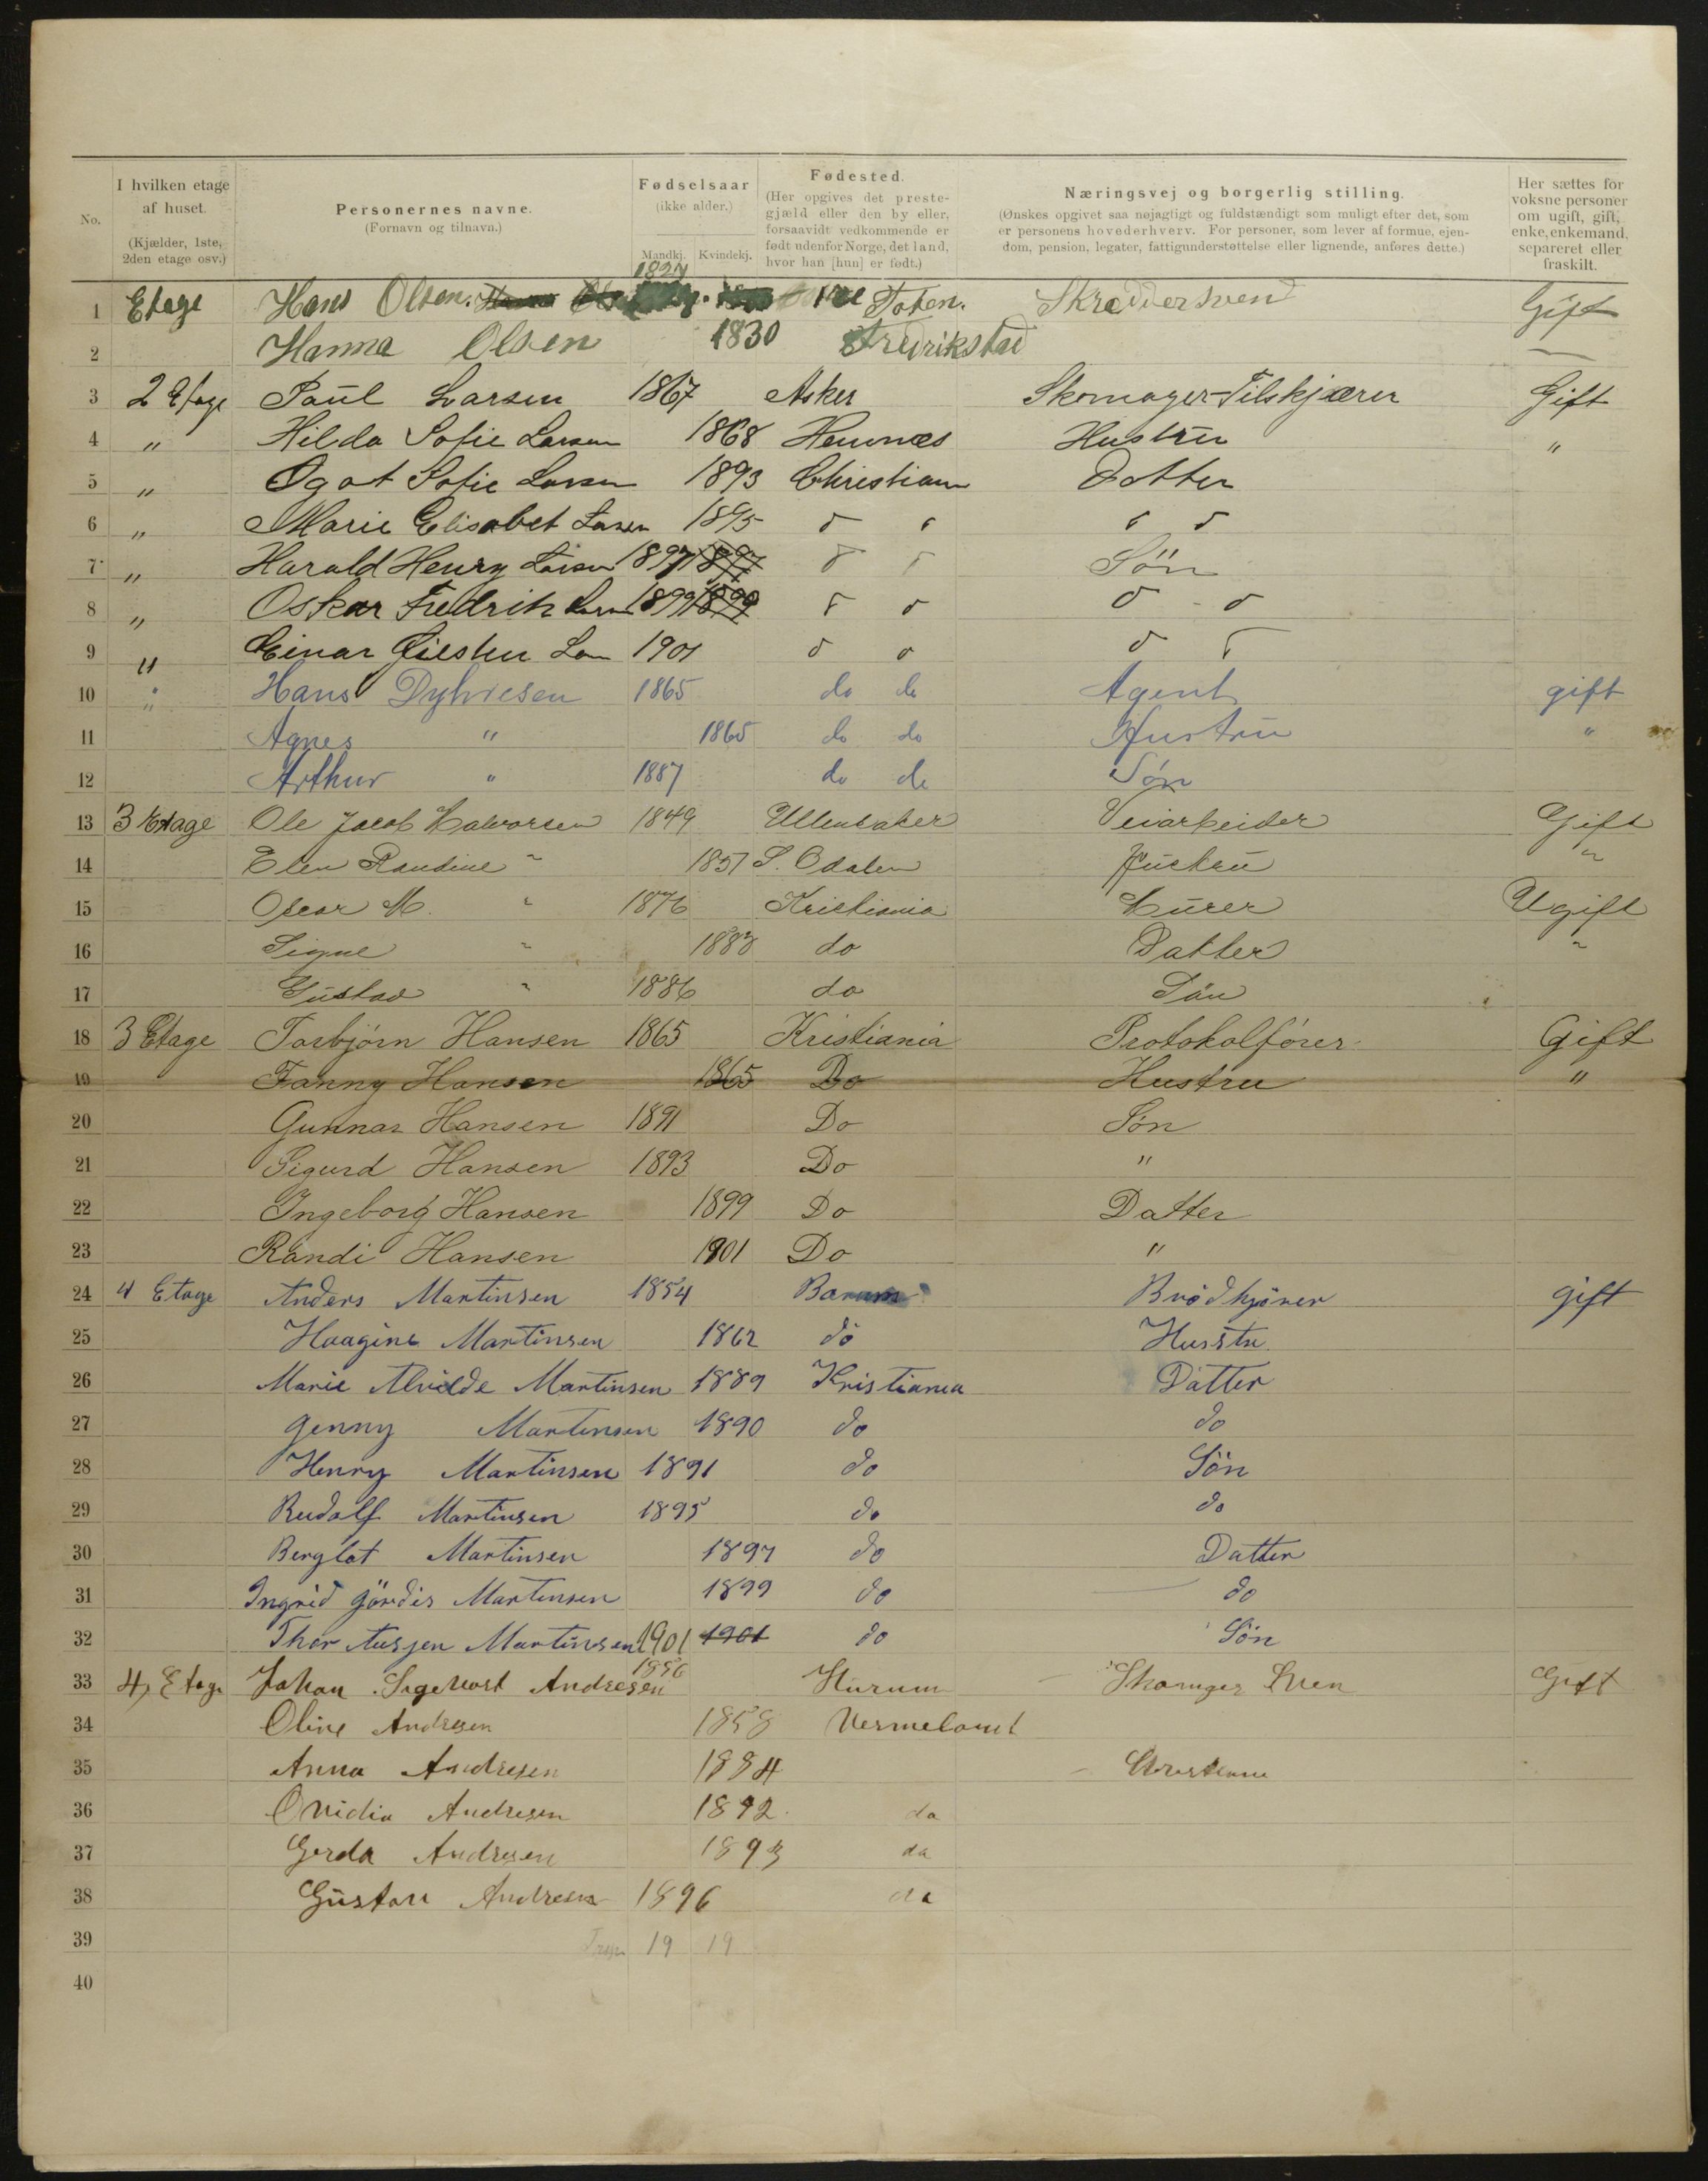 No. I hvilken etage af huset. (Kjælder, 1ste, 2den etage osv.) Personernes navne. (Fornavn og tilnavn.) Fødselsaar (ikke alder.) Mandkj. Kvindekj. Fødested. (Her opgives det prestegjæld eller den by eller, forsaavidt vedkommende er født udenfor Norge, det land, hvor han [hun] er født.) Næringsvej og borgerlig stilling. (Ønskes opgivet saa nøjagtigt og fuldstændigt som muligt efter det, som er personens hovederhverv. For personer, som lever af formue, ejendom, pension, legater, fattigunderstøttelse eller lignende, anføres dette.) Her sættes for voksne personer om ugift, gift, enke, enkemand, separeret eller fraskilt.
1 Etage Hans Olsen. 1827 Toten. Skreddersvend Gift
2 Hanna Olsen 1830 Fredrikstad
3 2 Etage Paul Larsen 1867 Asker Skomager-Tilskjærer Gift
4 " Hilda Sofie Larsen 1868 Hemnæs Hustru "
5 " Ogot Sofie Larsen 1893 Christiann Dotter
6 " Marie Elisabet Larsen 1895
7 " Harald Henry Larsen 1897 1897 Søn
8 " Oskar Fredrik Larsen 1899 1899
9 " Einar 1901
10 " Hans 1865 do do Agent gift
11 Agnes " 1865 do do Hustru "
12 Arthur " 1887 do do Søn
13 3 Etage Ole Jacob Halvorsen 1849 Ullensaker Veiarbeider Gift
14 Elen Randine " 1857 S. Odalen Hustru "
15 Oscar M. " 1876 Kristiania Murer Ugift
16 Signe " 1883 do Datter "
17 Gustav " 1886 do Sön
18 3 Etage Torbjørn Hansen 1865 Kristiania Protokolfører Gift
19 Fanny Hansen 1865 Do Hustru "
20 Gunnar Hansen 1891 Do Søn
21 Sigurd Hansen 1893 Do "
22 Ingeborg Hansen 1899 Do Datter
23 Randi Hansen 1901 Do "
24 4 Etage Anders Martinsen 1854 Barum Brödkjörer gift
25 Haagine Martinsen 1862 do Hustru
26 Marie Alvilde Martinsen 1889 Kristiania Datter
27 Genny Martinsen 1890 do do
28 Henry Martinsen 1891 do Sön
29 Rudolf Martinsen 1895 do do
30 Berglot Martinsen 1897 do Datter
31 Ingrid Gjördis Martinsen 1899 do do
32 Thor Martinsen 1901 1901 do Sön
33 4 Etage Johan Andresen 1856 Hurum Gift
34 Oline Andresen 1858 Vermeland
35 Anna Andresen 1884 Christiania
36 Ovidia Andresen 1892 da
37 Gerda Andresen 1893 da
38 Gustav Andresen 1896 da
39 19 19
40